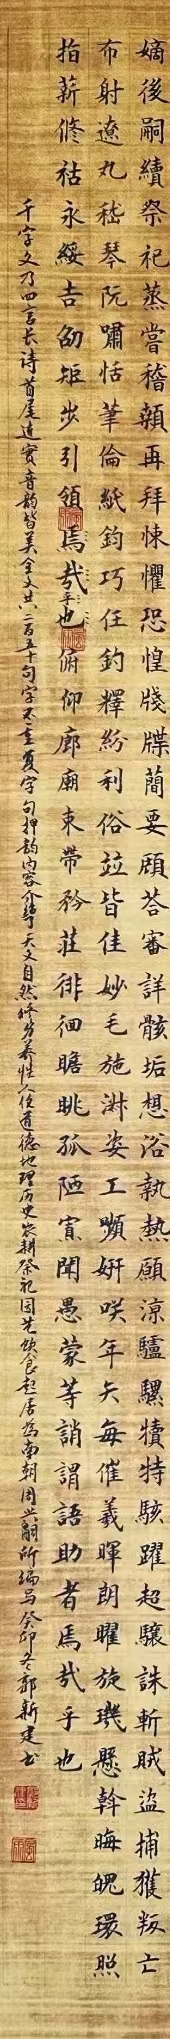 嫡後嗣續祭祀蒸嘗稽顙再拜悚懼恐惶牋牒蕳要顧荅審詳骸垢想浴執熱願涼驢騾犢特駭躍超驤誅斬賊盜捕獲叛亡
布射遼丸嵇琴阮嘯恬筆倫紙鈞巧任釣釋紛利俗竝皆佳妙毛施淑姿工顰妍咲年矢每催羲暉朗曜旋璣懸斡晦魄環照
指薪修祜永綏吉劭矩步引領焉哉乎也俯仰廊廟束帶矜莊徘徊瞻眺孤陋寡聞愚蒙等誚謂語助者焉哉乎也
千字文乃四言长诗首尾連貫音韵皆美全文共二百五十句字不重复字句押韵内容介绍天文自然修身养性人伦道德地理历史农耕祭祀园艺饮食起居为南朝周兴嗣所编写癸卯冬郭新建书